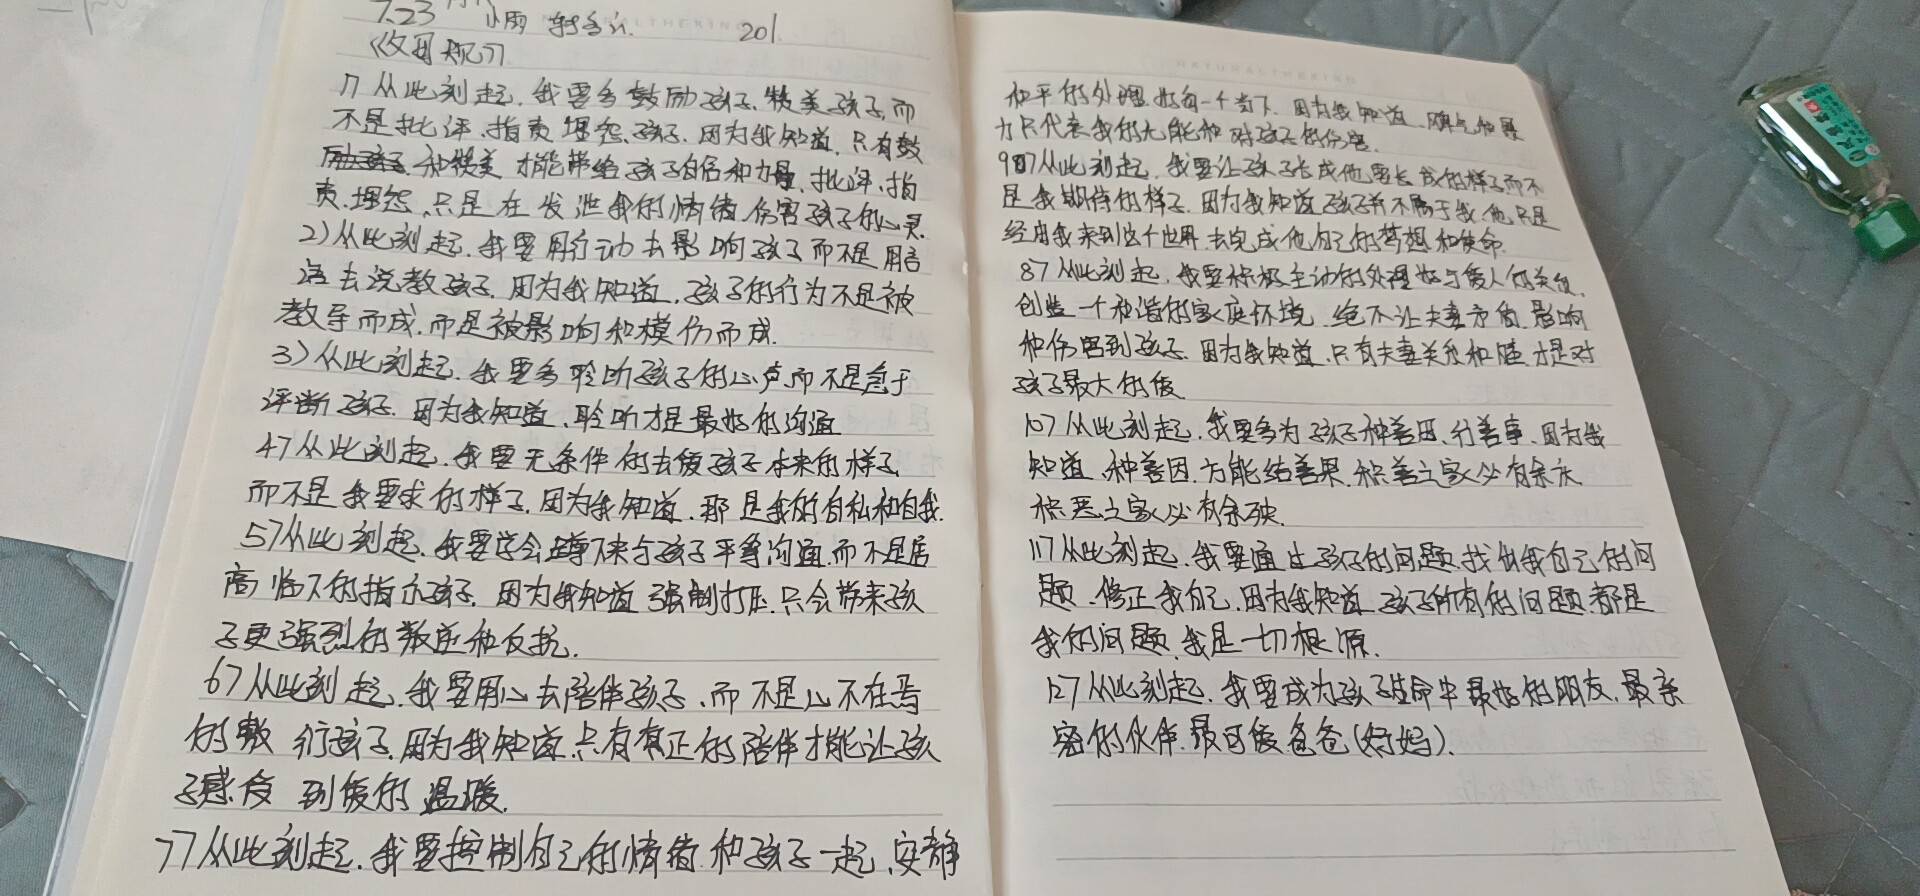 7.23 小雨 201
《父母规》
1) 从此刻起，我要多鼓励孩子，赞美孩子，而
不是批评、指责、埋怨、孩子，因为我知道，只有鼓
励 和赞美 才能带给孩子自信和力量，批评、指
责、埋怨、只是在发泄我的情绪，伤害孩子的心灵
2) 从此刻起，我要用行动去影响孩子而不是用言
语去说教孩子，因为我知道，孩子的行为不是被
教导而成，而是被影响和模仿而成.
3) 从此刻起，我要多聆听孩子的心声而不是急于
评断孩子，因为我知道，聆听才是最好的沟通
4) 从此刻起，我要无条件的去爱孩子本来的样子，
而不是我要求的样子，因为我知道，那是我的自私和自我.
5) 从此刻起，我要学会蹲下来与孩子平等沟通，而不是居
高临下的指示孩子，因为我知道 强制打压，只会带来孩
子更强烈的叛逆和反抗.
6) 从此刻起，我要用心去陪伴孩子、而不是心不在焉
的敷衍孩子，因为我知道，只有真正的陪伴才能让孩
子感受到爱的温暖.
7) 从此刻起，我要控制自己的情绪，和孩子一起、安静
和平的处理好每一个当下，因为我知道、脾气和暴
力只代表我的无能和对孩子的伤害.
9) 从此刻起，我要让孩子长成他要长成的样子而不
是我期待的样子，因为我知道孩子并不属于我，他只是
经由我来到这个世界，去完成他自己的梦想和使命.
8) 从此刻起，我要积极主动的处理好与爱人的关系，
创造一个和谐的家庭环境，绝不让夫妻矛盾，影响
和伤害到孩子，因为我知道，只有夫妻关系和睦，才是对
孩子最大的爱
10) 从此刻起，我要多为孩子种善因、行善事，因为我
知道、种善因，方能结善果，积善之家必有余庆
积恶之家必有余殃.
11) 从此刻起，我要通过孩子的问题，找出我自己的问
题，修正我自己，因为我知道，孩子所有的问题，都是
我的问题，我是一切根源.
12) 从此刻起，我要成为孩子生命中最好的朋友，最亲
密的伙伴，最可爱爸爸(好妈).